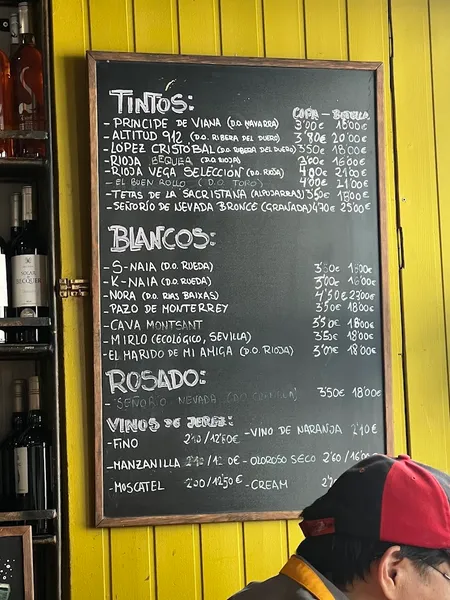 TINTOS:
COPA - BOTELLA
- PRINCIPE DE VIANA (D.O. NAVARRA) 3'00€ 16'00€
- ALTITUD 912 (D.O. RIBERA DEL DUERO) 3'80€ 20'00€
- LOPEZ CRISTOBAL (D.O. RIBERA DEL DUERO) 3'50€ 18'00€
- RIOJA BEQUER (D.O. RIOJA) 3'00€ 16'00€
- RIOJA VEGA SELECCIÓN (D.O. RIOJA) 4'00€ 21'00€
- EL BUEN ROLLO (D.O. TORO) 4'00€ 21'00€
- TETAS DE LA SACRISTANA (ALPUJARRAS) 3'50€ 18'00€
- SEÑORIO DE NEVADA BRONCE (GRANADA) 4'70€ 25'00€
BLANCOS:
- S-NAIA (D.O. RUEDA) 3'50€
- K-NAIA (D.O. RUEDA) 3'00€ 16'00€
- NORA (D.O. RIAS BAIXAS) 4'50€ 23'00€
- PAZO DE MONTERREY 3'50€ 18'00€
- CAVA MONTSANT 3'50€ 18'00€
- MIRLO (ECOLÓGICO, SEVILLA) 3'50€ 18'00€
- EL MARIDO DE MI AMIGA (D.O. RIOJA) 3'50€ 18'00€
ROSADO:
- SEÑORIO NEVADA 3'50€ 18'00€
VINOS DE JEREZ:
- FINO 2'10/12'60€ - VINO DE NARANJA 2'10€
- MANZANILLA - OLOROSO SECO 2'60/16'00
- MOSCATEL 2'00/12'50€ - CREAM